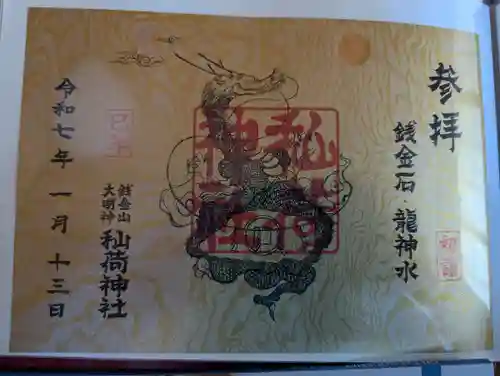 参拝
銭金石・龍神水
初詣
私荷神社
巳土
銭金山
大明神
私荷神社
令和七年一月十三日